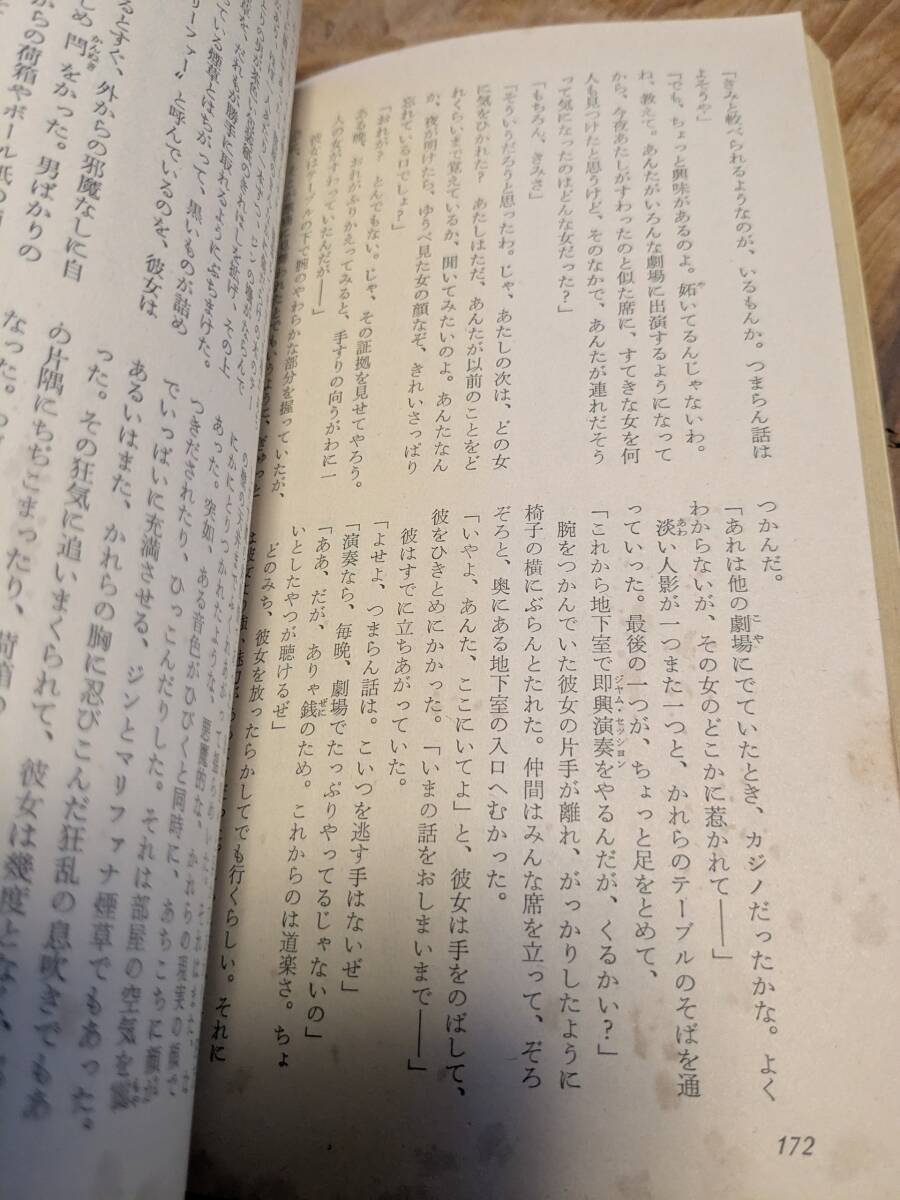 「きみと較べられるようなのが、いるもんか。つまらん話は
よそうや」
「でも、ちょっと興味があるのよ。妬いてるんじゃないわ。
ね、教えて。あんたがいろんな劇場に出演するようになって
から、今夜あたしがすわったのと似た席に、すてきな女を何
人も見つけたと思うけど、そのなかで、あんたが連れだそう
って気になったのはどんな女だった？」
「もちろん、きみさ」
「そういうだろうと思ったわ。じゃ、あたしの次は、どの女
に気をひかれた？　あたしはただ、あんたが以前のことをど
れくらいまで覚えているか、聞いてみたいのよ。あんたなん
か、夜が明けたら、ゆうべ見た女の顔なぞ、きれいさっぱり
忘れている口でしょ？」
「おれが？　とんでもない。じゃ、その証拠を見せてやろう。
ある晩、おれがふりかえってみると、手すりの向うがわに一
人の女がすわっていたんだが――」
彼女はテーブルの下で腕のやわらかな部分を握っていたが、
つかんだ。
「あれは他の劇場にでていたとき、カジノだったかな。よく
わからないが、その女のどこかに惹かれて――」
淡い人影が一つまた一つと、かれらのテーブルのそばを通
っていった。最後の一つが、ちょっと足をとめて、
「これから地下室で即興演奏をやるんだが、くるかい？」
腕をつかんでいた彼女の片手が離れ、がっかりしたように
椅子の横にぶらんとたれた。仲間はみんな席を立って、ぞろ
ぞろと、奥にある地下室の入口へむかった。
「いやよ、あんた、ここにいてよ」と、彼女は手をのばして、
彼をひきとめにかかった。「いまの話をおしまいまで――」
彼はすでに立ちあがっていた。
「よせよ、つまらん話は。こいつを逃す手はないぜ」
「演奏なら、毎晩、劇場でたっぷりやってるじゃないの」
「ああ、だが、ありゃ銭のため。これからのは道楽さ。ちょ
いとしたやつが聴けるぜ」
どのみち、彼女を放ったらかしてでも行くらしい。それに
172
るとすぐ、外からの邪魔なしに自
め閂をかった。男ばかりの
からの荷箱やボール紙の
っている煙草とはちがって、黒いものが詰め
リーファー〟と呼んでいるのを、彼女は
あった。突如、ある音色がひびくと同時に、あちこちに顔が
つきだされたり、ひっこんだりした。それは部屋の空気を
でいっぱいに充満させる、ジンとマリファナ煙草でもあった。
あるいはまた、かれらの胸に忍びこんだ狂乱の息吹きでもあ
った。その狂気に追いまくられて、彼女は幾度となく、
の片隅にちぢこまったり、荷箱の
なった。